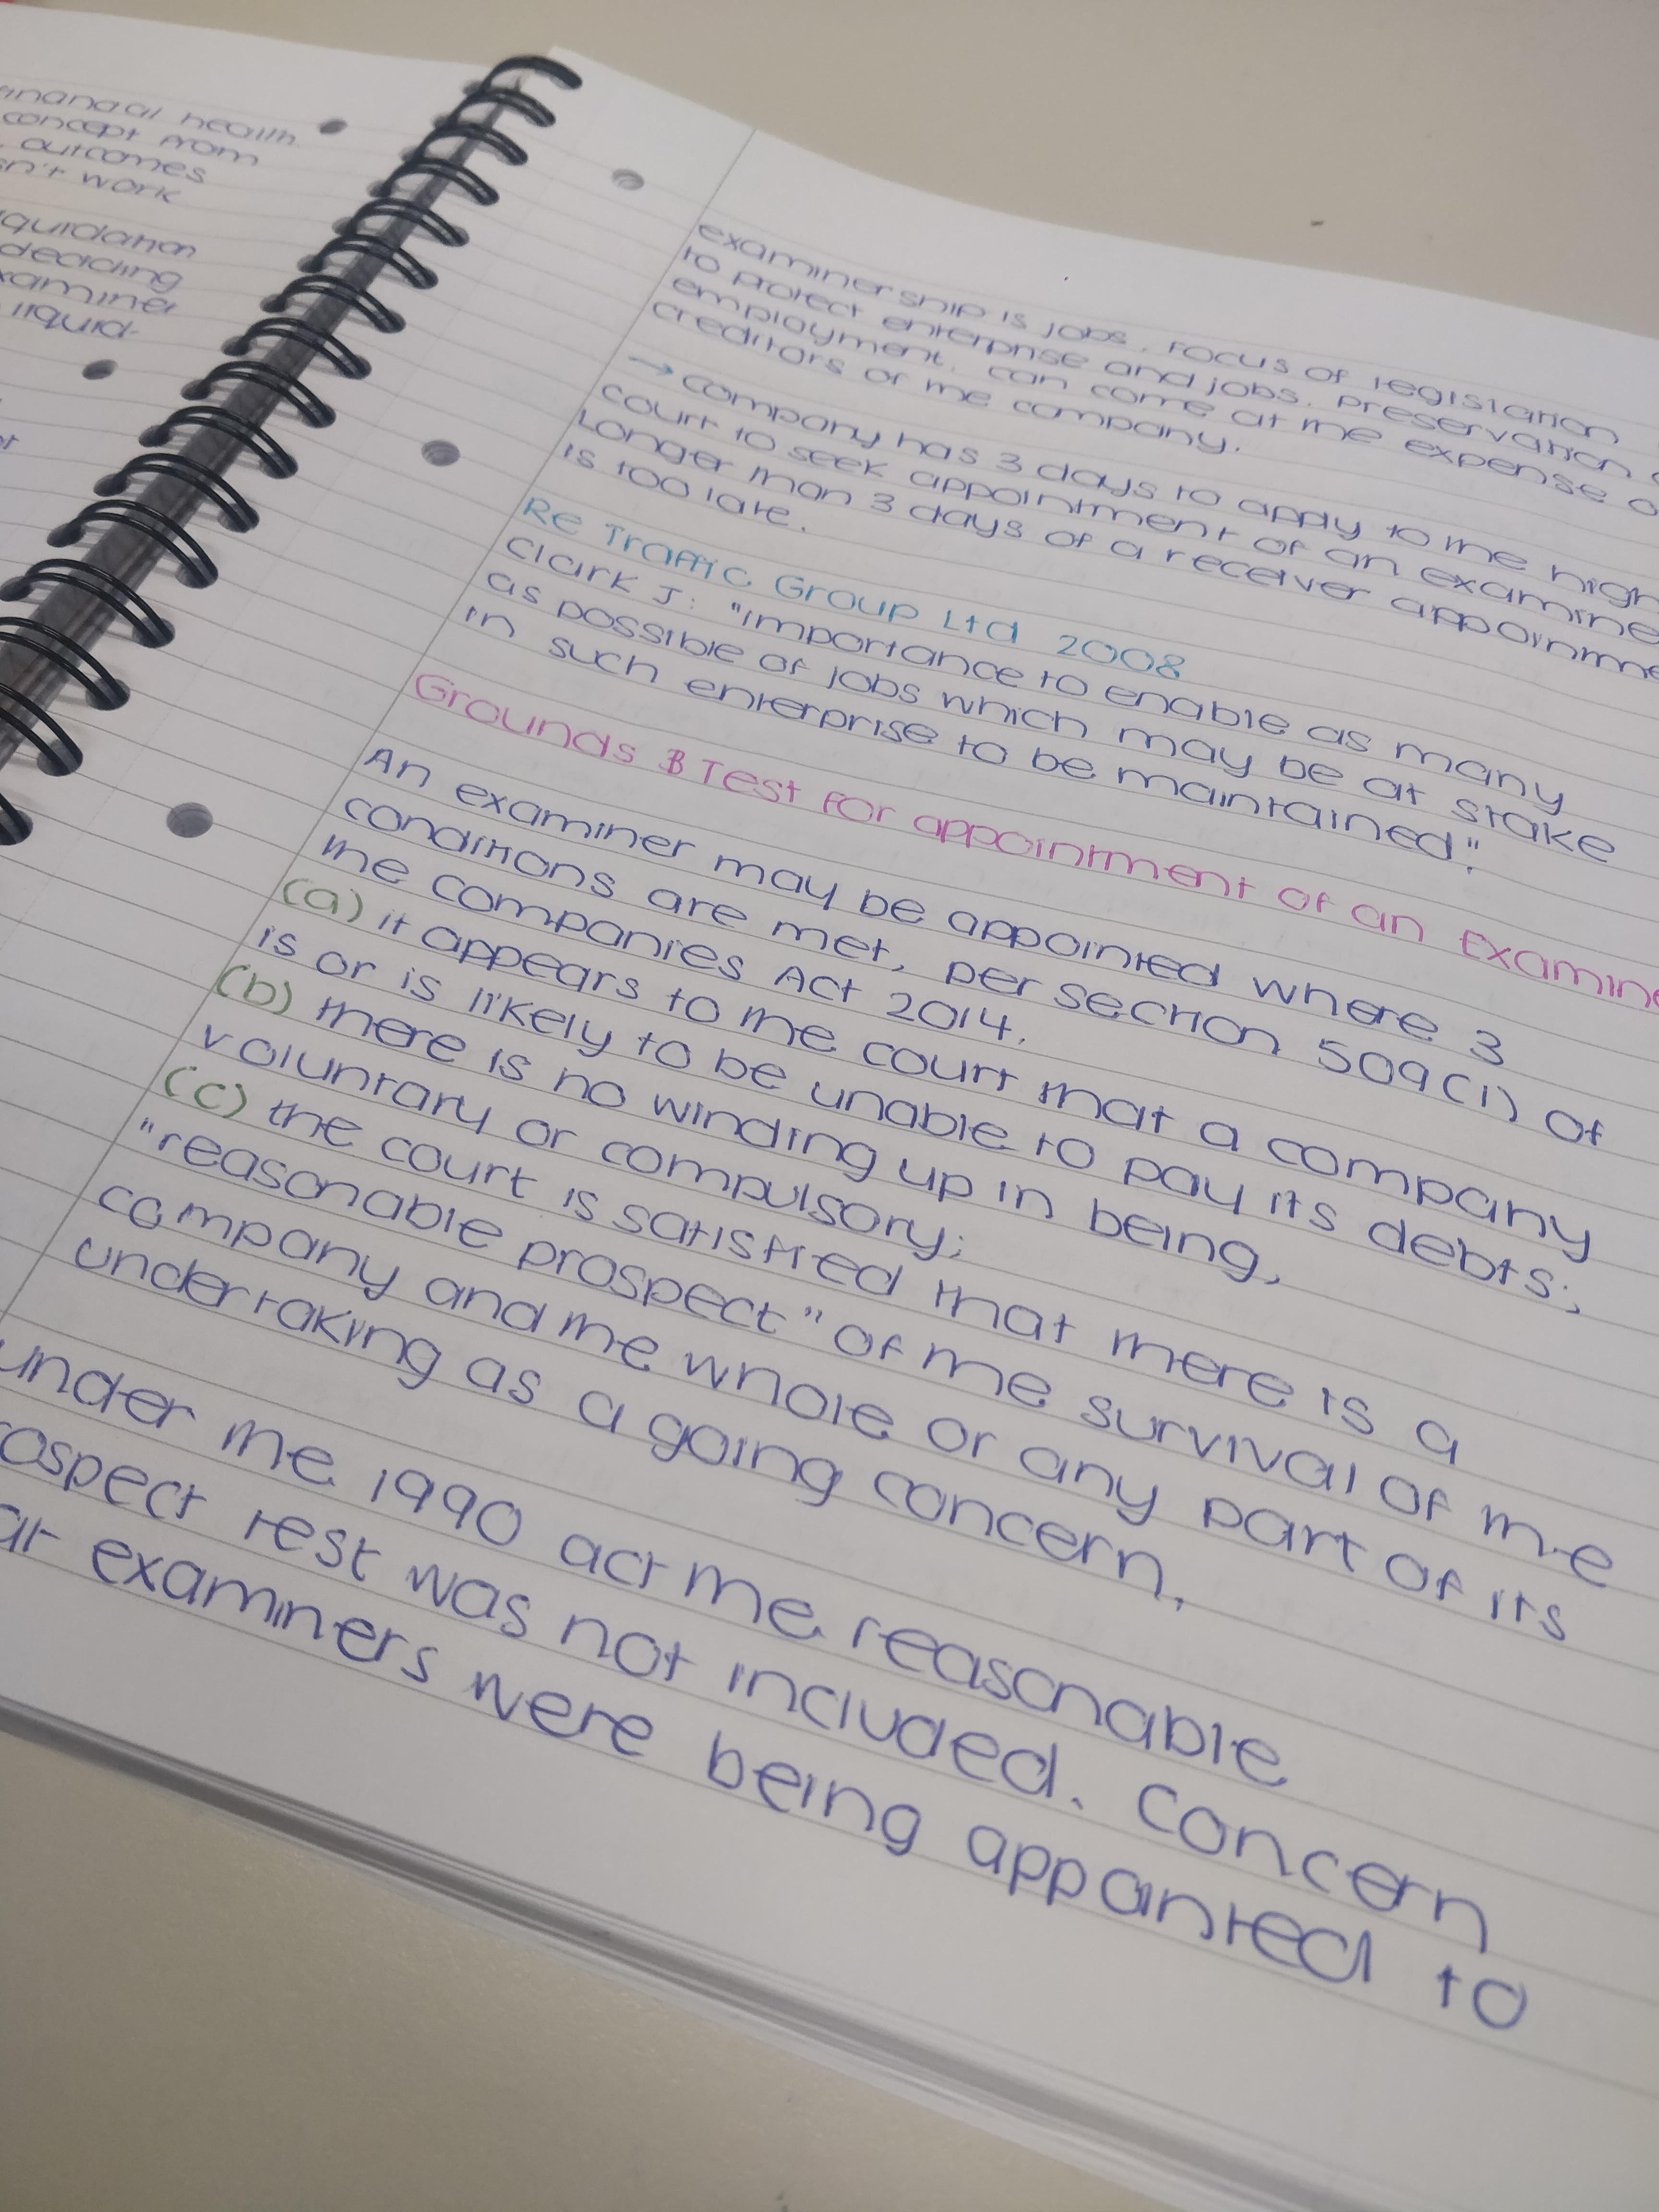 financial health
concept from
outcomes
sn't work
liquidation
deciding
examiner
liquid-
examinership is jobs. Focus of legislation
to protect enterprise and jobs. preservation
employment. can come at the expense
creditors or the company.
→ company has 3 days to apply to the high
court to seek appointment of an examine
Longer than 3 days of a receiver appointme
is too late.
Re Traffic Group Ltd 2008
Clark J: "importance to enable as many
as possible of jobs which may be at stake
in such enterprise to be maintained".
Grounds & Test for appointment of an Examine
An examiner may be appointed where 3
conditions are met, per section 509(1) of
the companies Act 2014.
(a) it appears to the court that a company
is or is likely to be unable to pay its debts;
(b) there is no winding up in being,
voluntary or compulsory;
(c) the court is satisfied that there is a
"reasonable prospect" of the survival of the
company and the whole or any part of its
undertaking as a going concern.
under the 1990 act the reasonable
ospect test was not included. Concern
at examiners were being appointed to